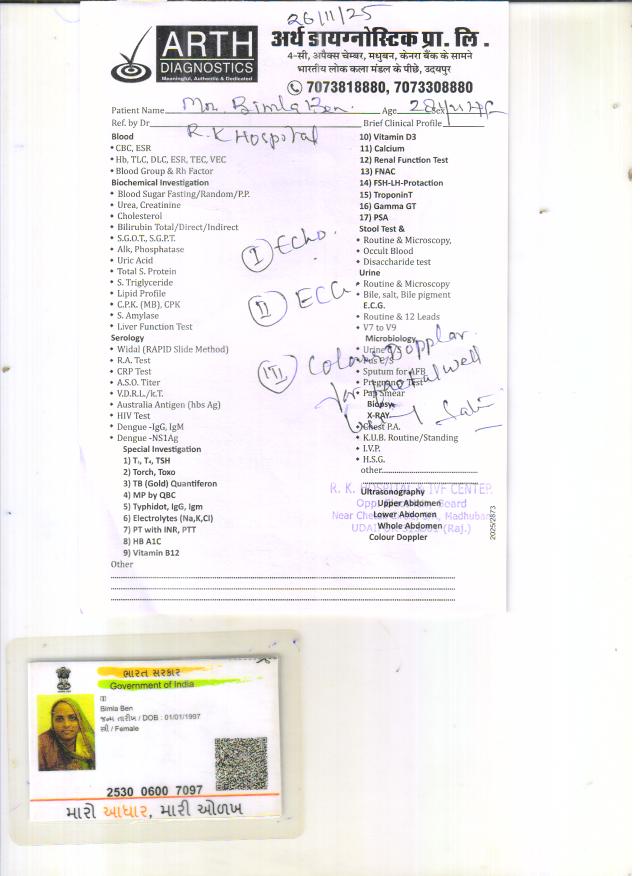 26/11/25
ARTH
DIAGNOSTICS
Meaningful, Authentic & Dedicated
अर्थ डायग्नोस्टिक प्रा. लि.
4-सी, अपैक्स चेम्बर, मधुबन, केनरा बैंक के सामने
भारतीय लोक कला मंडल के पीछे, उदयपुर
7073818880, 7073308880
Patient Name Mrs. Bimla Ben. Age 28y
Ref. by Dr R.K Hospital Brief Clinical Profile
Blood
• CBC, ESR
• Hb, TLC, DLC, ESR, TEC, VEC
• Blood Group & Rh Factor
Biochemical Investigation
• Blood Sugar Fasting/Random/P.P.
• Urea, Creatinine
• Cholesterol
• Bilirubin Total/Direct/Indirect
• S.G.O.T., S.G.P.T.
• Alk, Phosphatase
• Uric Acid
• Total S. Protein
• S. Triglyceride
• Lipid Profile
• C.P.K. (MB), CPK
• S. Amylase
• Liver Function Test
Serology
• Widal (RAPID Slide Method)
• R.A. Test
• CRP Test
• A.S.O. Titer
• V.D.R.L./k.T.
• Australia Antigen (hbs Ag)
• HIV Test
• Dengue -IgG, IgM
• Dengue -NS1Ag
Special Investigation
1) T₃, T₄, TSH
2) Torch, Toxo
3) TB (Gold) Quantiferon
4) MP by QBC
5) Typhidot, IgG, Igm
6) Electrolytes (Na,K,Cl)
7) PT with INR, PTT
8) HB A1C
9) Vitamin B12
Other
10) Vitamin D3
11) Calcium
12) Renal Function Test
13) FNAC
14) FSH-LH-Protaction
15) TroponinT
16) Gamma GT
17) PSA
Stool Test &
• Routine & Microscopy,
• Occult Blood
• Disaccharide test
Urine
• Routine & Microscopy
• Bile, salt, Bile pigment
E.C.G.
• Routine & 12 Leads
• V7 to V9
Microbiology
• Urine C/S
• Pus C/S
• Sputum for AFB
• Pregnancy Test
• Pap Smear
Biopsy
X-RAY
• Chest P.A.
• K.U.B. Routine/Standing
• I.V.P.
• H.S.G.
other
Ultrasonography
Upper Abdomen
Lower Abdomen
Whole Abdomen
Colour Doppler
I Echo.
II ECG
III Colour Dopplar.
for Foetal well
R. K. HOSPITAL & IVF CENTER
2025/2873
ભારત સરકાર
Government of India
Bimla Ben
જન્મ તારીખ / DOB : 01/01/1997
સ્ત્રી / Female
2530 0600 7097
મારો આધાર, મારી ઓળખ